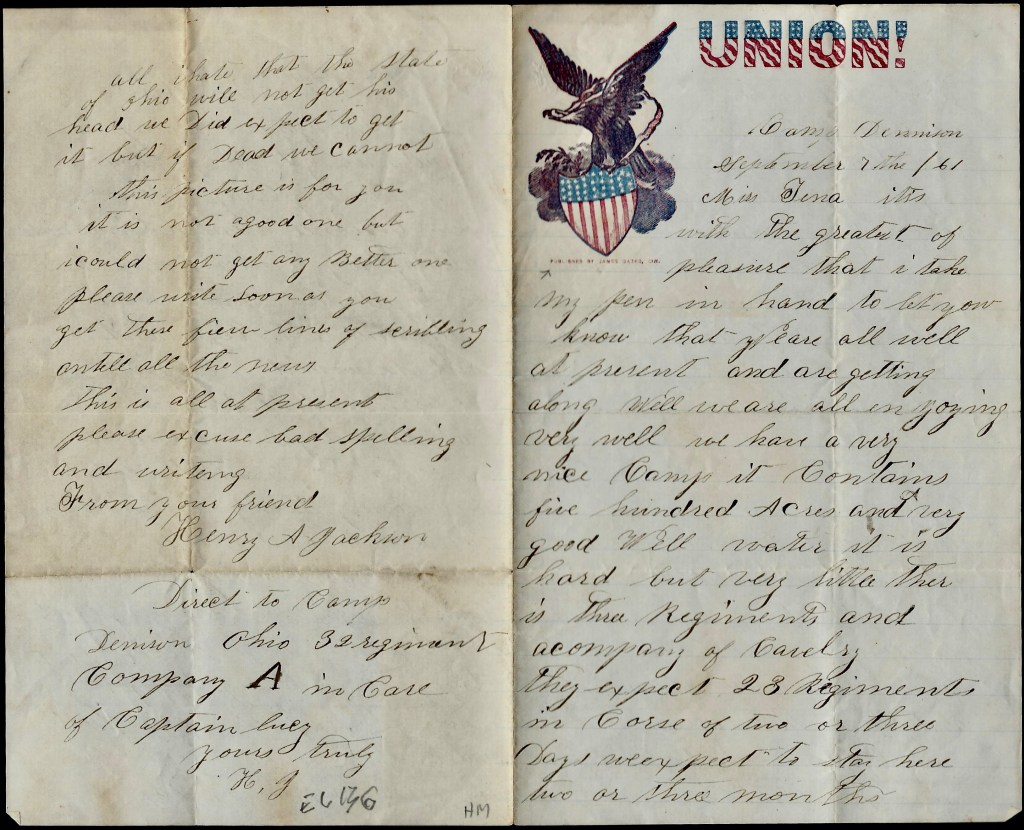 UNION!
Camp Dennison
September 7 the /61
Miss Tena its
with the greatest of
pleasure that i take
PUBLISHED BY JAMES GATES, CIN.
my pen in hand to let you
know that we are all well
at present and are getting
along Well we are all en Joying
very well we have a very
nice Camp it Contains
five hundred Acres and very
good Well water it is
hard but very little ther
is three Regiments and
acompany of Cavelry
they expect 23 Regiments
in Corse of two or three
Days we expect to stay here
two or three months
all i hate that the State
of Ohio will not get his
head we Did expect to get
it but if Dead we cannot
this picture is for you
it is not agood one but
icould not get any Better one
please write Soon as you
get these fiew lines of scribling
antell all the news
This is all at present
please excuse bad spelling
and writeng
From your friend
Henry A Jackson
Direct to Camp
Denison Ohio 32 regiment
Company A in Care
of Captain lucy
yours truly
H, J
HM